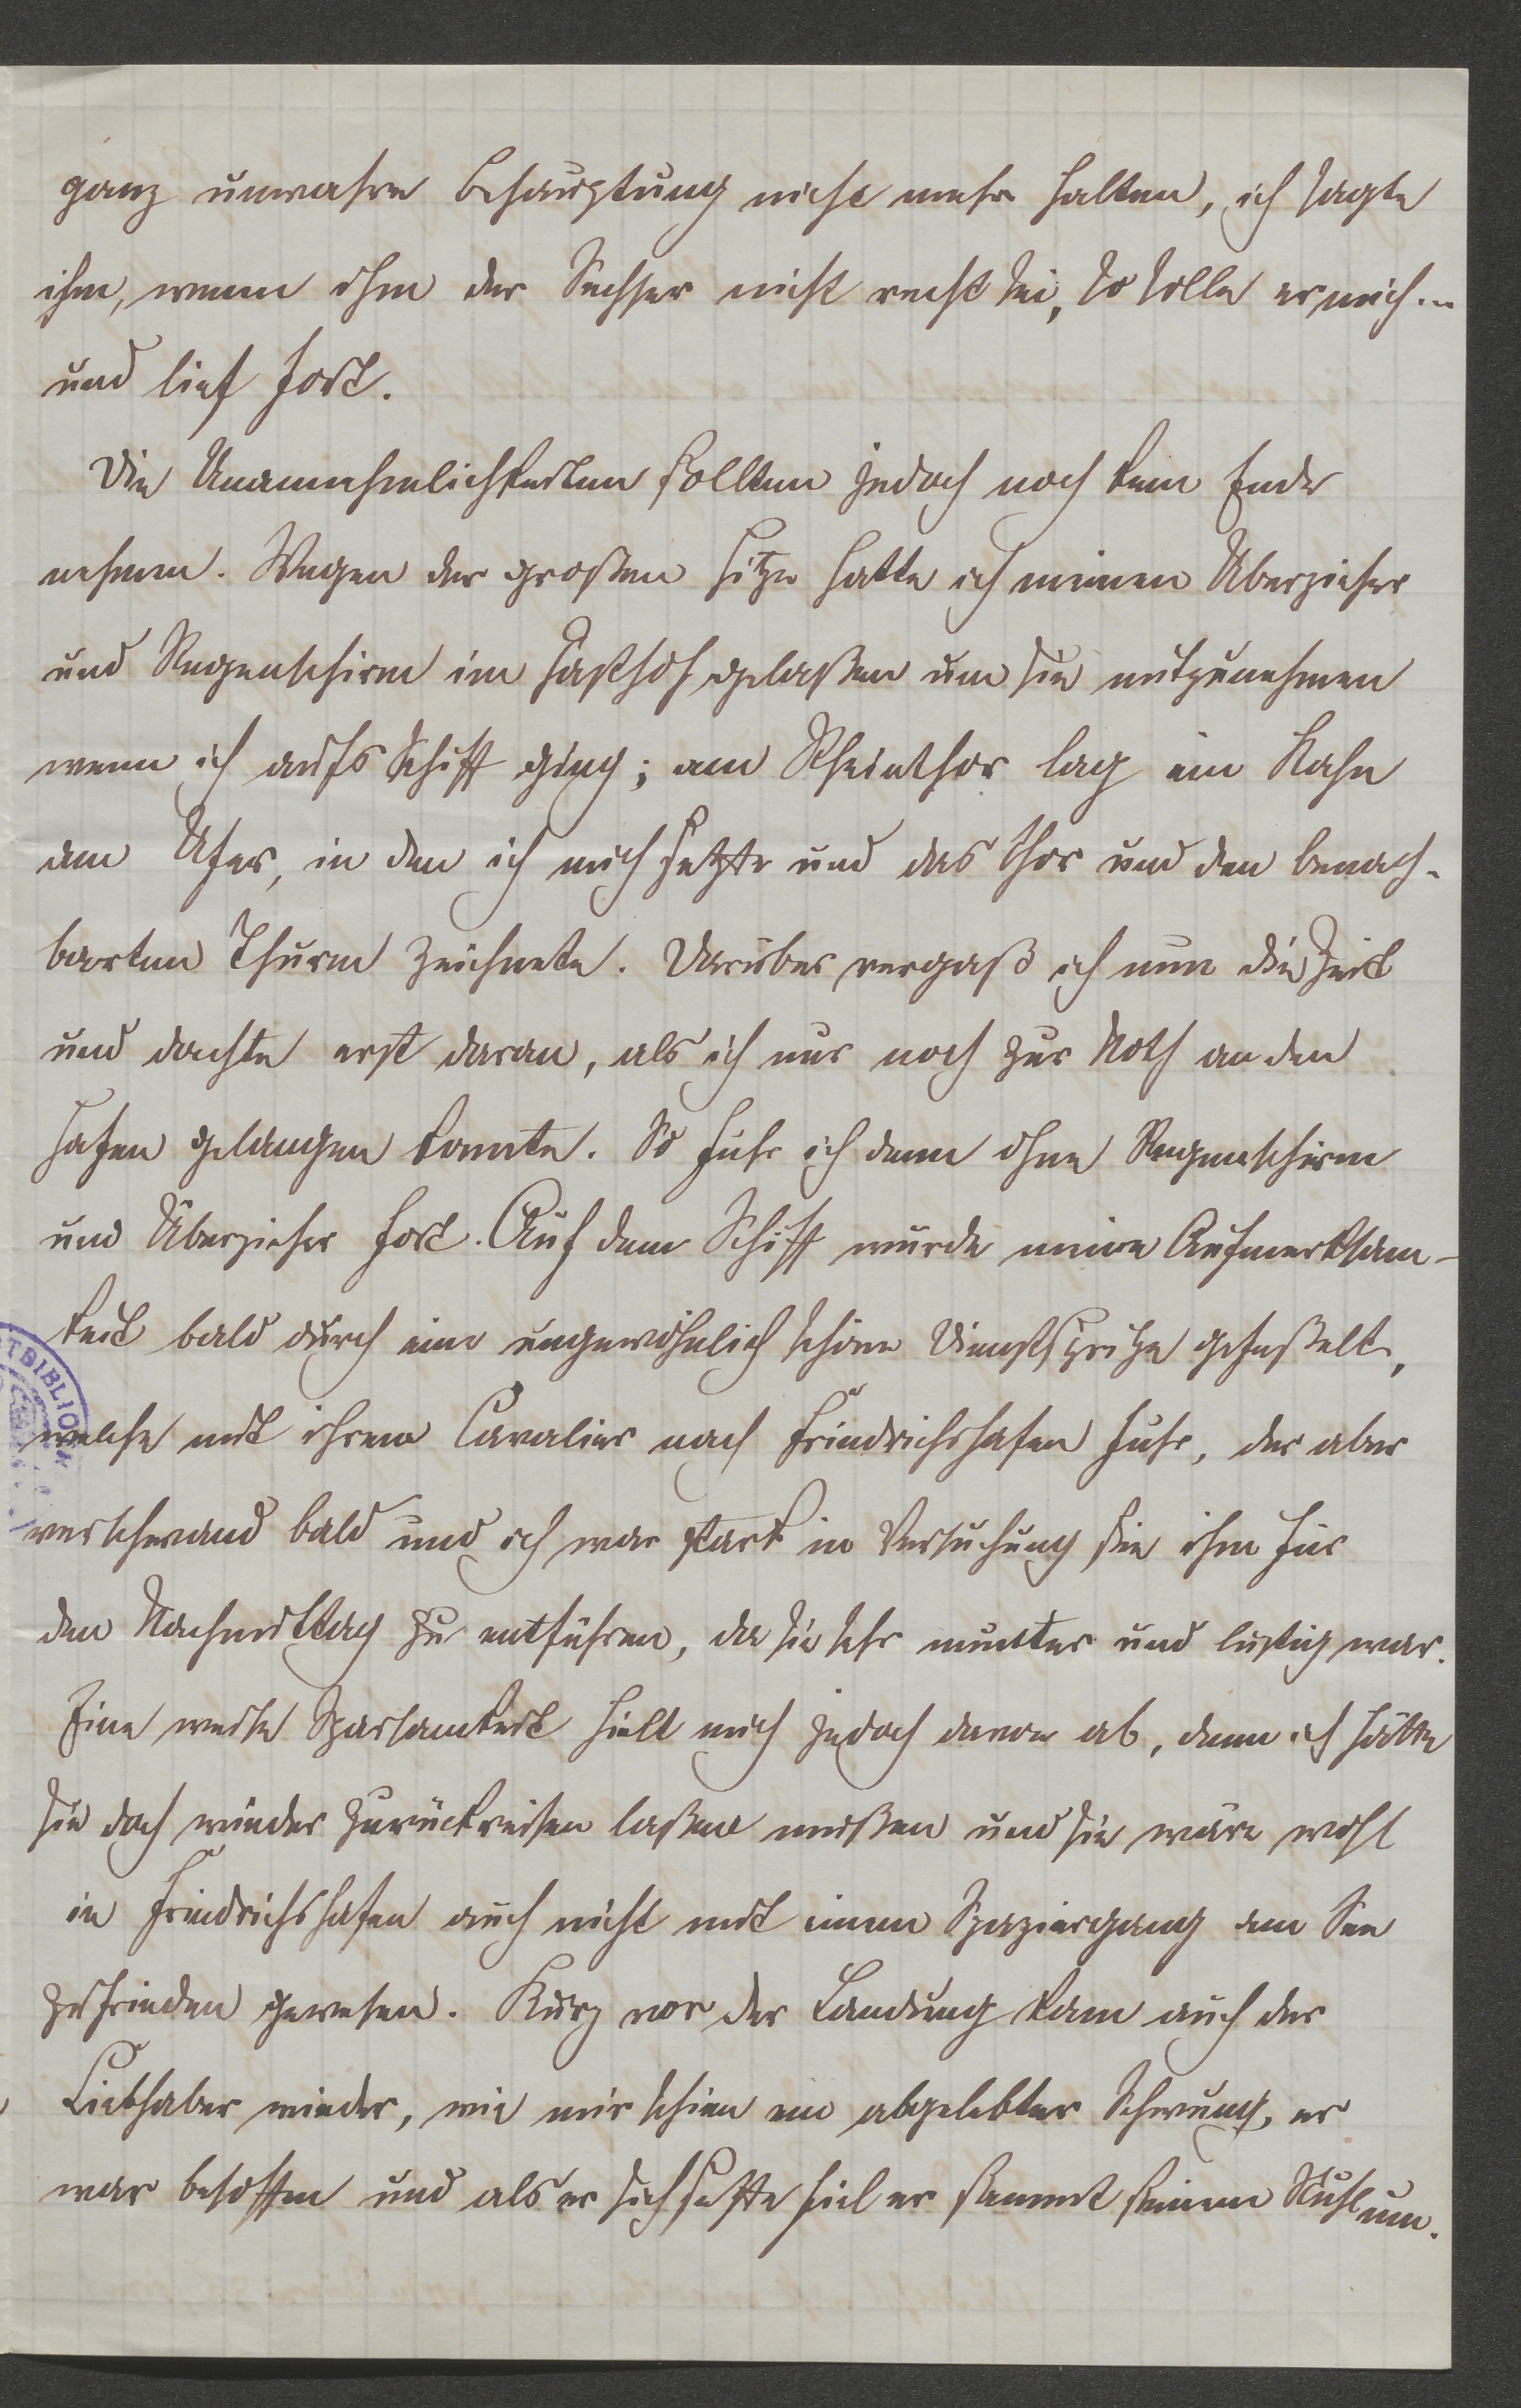 ganz unwahre Behauptung nicht mehr halten, ich sagte
ihm, wenn ihm der Sechser nicht recht sei, so solle er mich...
und lief fort.
Die Unannehmlichkeiten sollten jedoch noch kein Ende
nehmen. Wegen der großen Hitze hatte ich meinen Überzieher
und Regenschirm im Gasthof gelaßen um sie mitzunehmen
wenn ich aufs Schiff ging; am Rheinthor lag ein Kahn
am Ufer, in den ich mich setzte und das Thor und den benach-
barten Thurm zeichnete. Darüber vergaß ich nun die Zeit
und dachte erst daran, als ich nur noch zur Noth an den
Hafen gelangen konnte. So fuhr ich denn ohne Regenschirm
und Überzieher fort. Auf dem Schiff wurde meine Aufmerksam-
keit bald durch eine ungewöhnlich schöne Dienstspritze gefeßelt,
welche mit ihrem Cavalier nach Friedrichshafen fuhr, der aber
verschwand bald und ich war stark in Versuchung sie ihm für
den Nachmittag zu entführen, da sie sehr munter und lustig war.
Eine weise Sparsamkeit hielt mich jedoch davon ab, denn ich hätte
sie doch wieder zurückreisen laßen müßen und sie wäre wohl
in Friedrichshafen auch nicht mit einem Spaziergang am See
zufrieden gewesen. Kurz vor der Landung kam auch der
Liebhaber wieder, wie mir schien ein abgelebter Schwung, er
war besoffen und als er sich setzte fiel er sammt seinem Stuhl um.